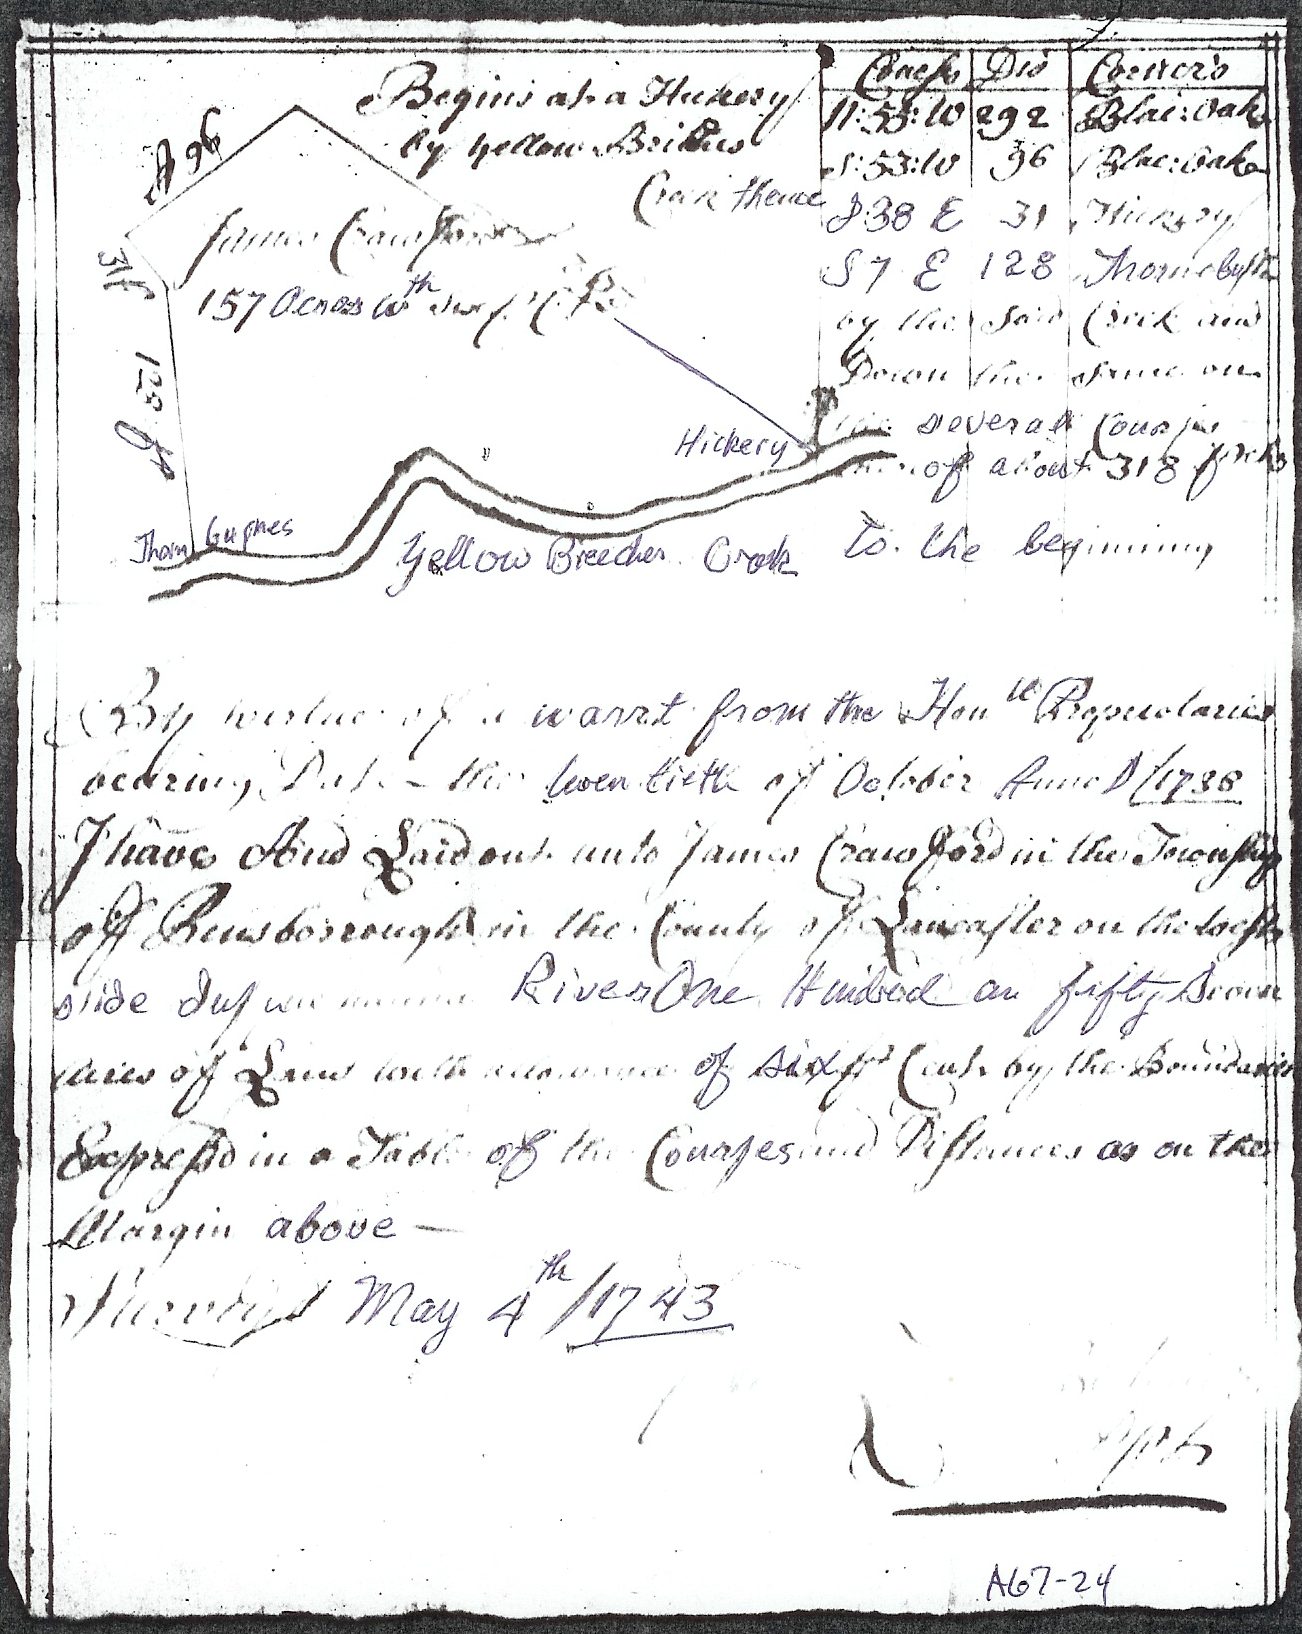 Begins at a Hickery
by yellow Briches
Creek thence
Courses Dis Corner's
N:55:W 292 Blac:Oake
S:53:W 96 Blac:Oake
S 38 E 31 Hickery
S 7 E 128 Thornebush
by the said Creek and
Down the same on
the several Courses
thereof about 318 perches
To the beginning
96
James Crawford
157 Acres wth
31 p
128 p
Hickery
Thorn
Yellow Breeches Creek
By vertue of a warrt from the Honble Proprietaries
bearing Date - the twentieth of October Anno D/1738
I have And Laid out unto James Crawford in the Township
of Pensborrough in the County of Lancaster on the West
side Susquehanna River One Hundred an fifty Seven
acres of Land with allowance of six pr Cent. by the Boundaries
Expressed in a Table of the Courses and Distances as on the
Margin above —
May 4th/1743
A67-24